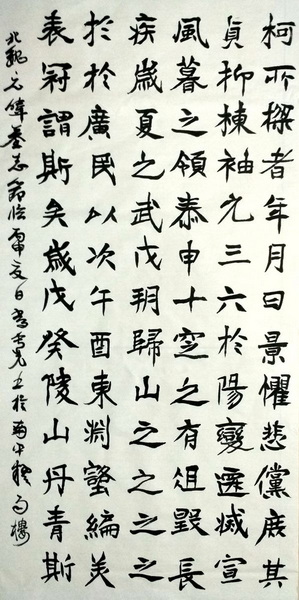 柯所樑者年月日景懼悲黨庶其
貞抑棟袖元三六於陽變遷滅宣
風暮之領泰申十窆之有俎毀長
疾歲夏之武戊朔歸山之之之之
於於廣民以次午酉東淵鑒編美
表冠謂斯矣歲戊癸陵山丹青斯
北魏元偉墓志節臨丙申夏日書於雨樓